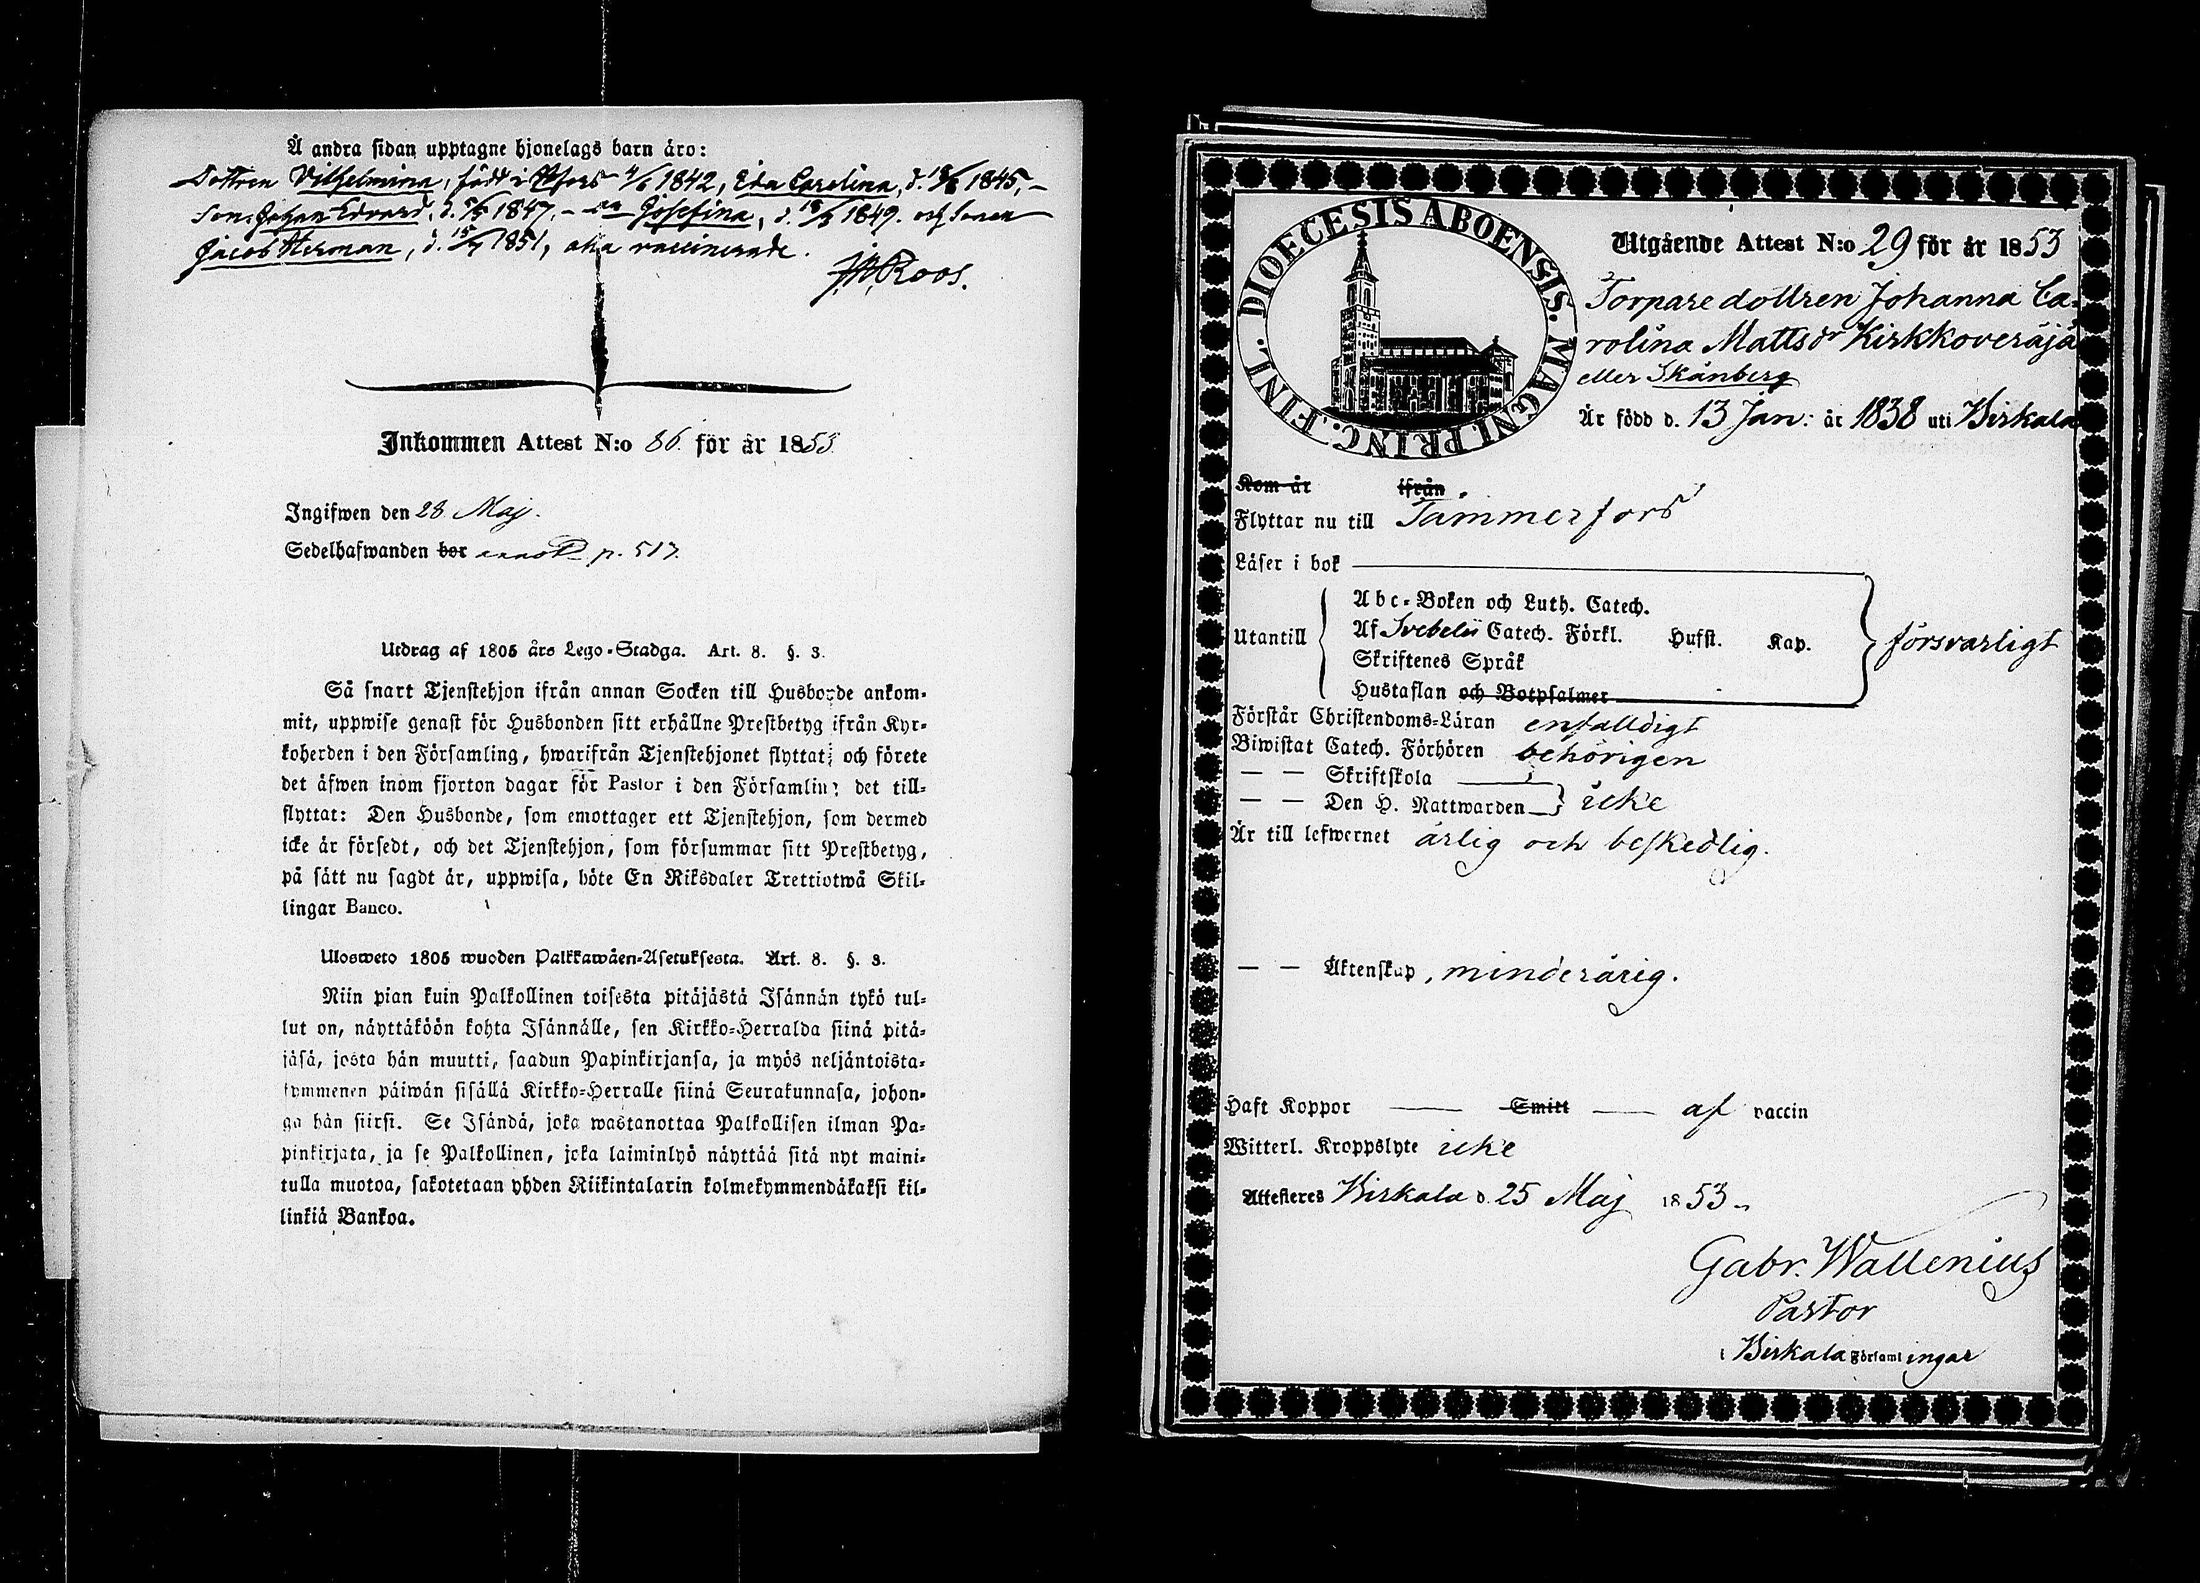 Å andra sidan upptagne hjonelags barn äro:
Dottren Vilhelmina, född i 4/6 1842, Eva Carolina, d. 1845,-
Son. Johan Edvard, d. 5/5 1847, - Josefina, d. 1849. och Sonen
Jacob Herman, d. 15/7 1851, alla vaccinerade.
J. W. Roos.
Inkommen Attest N:o 86. för år 1853
Ingifwen den 28 Maj.
Sedelhafwanden bor p. 517.
Utdrag af 1805 års Lego-Stadga. Art. 8. §. 3.
Så snart Tjenstehjon ifrån annan Socken till Husbonde ankom-
mit, uppwise genast för Husbonden sitt erhållne Prestbetyg ifrån Kyr-
koherden i den Församling, hwarifrån Tjenstehjonet flyttat; och förete
det äfwen inom fjorton dagar för Pastor i den Församling det till-
flyttat: Den Husbonde, som emottager ett Tjenstehjon, som dermed
icke är försedt, och det Tjenstehjon, som försummar sitt Prestbetyg,
på sätt nu sagdt är, uppwisa, böte En Riksdaler Trettiotwå Skil-
lingar Banco.
Ulosweto 1805 wuoden Palkkawäen-Asetuksesta. Art. 8. §. 3.
Niin pian kuin Palkollinen toisesta pitäjästä Isännän tykö tul-
lut on, näyttäköön kohta Isännälle, sen Kirkko-Herralda siinä pitä-
jäsä, josta hän muutti, saadun Papinkirjansa, ja myös neljäntoista-
kymmenen päiwän sisällä Kirkko-Herralle siinä Seurakunnasa, johon-
ga hän siirsi. Se Isändä, joka wastanottaa Palkollisen ilman Pa-
pinkirjata, ja se Palkollinen, joka laiminlyö näyttää sitä nyt maini-
tulla muotoa, sakotetaan yhden Riikintalarin kolmekymmendäkaksi kil-
linkiä Bankoa.
DIOECESIS ABOENSIS. MAGNI. PRINC. FINL.
Utgående Attest N:o 29 för år 1853
Torpare dottren Johanna Ca-
rolina Mattsdr Kirkkoveräjä
eller Skånberg
Är född d. 13 Jan: år 1838 uti Birkala
Kom år ifrån
Flyttar nu till Tammerfors
Läser i bok
Utantill
Abc-Boken och Luth. Catech.
Af Svebelii Catech. Förkl. Husst. Kap.
Skriftenes Språk
Hustaflan och Botpsalmer
försvarligt
Förstår Christendoms-Läran enfalldigt
Biwistat Catech. Förhören behörigen
— — Skriftskola
— — Den H. Nattwarden icke
Är till lefwernet ärlig och beskedlig.
— — Äktenskap, minderårig.
Haft Koppor — Smitt — af vaccin
Witterl. Kroppslyte icke
Attesteres Birkala d. 25 Maj 1853
Gabr. Wallenius
Pastor
i Birkala Församlingar